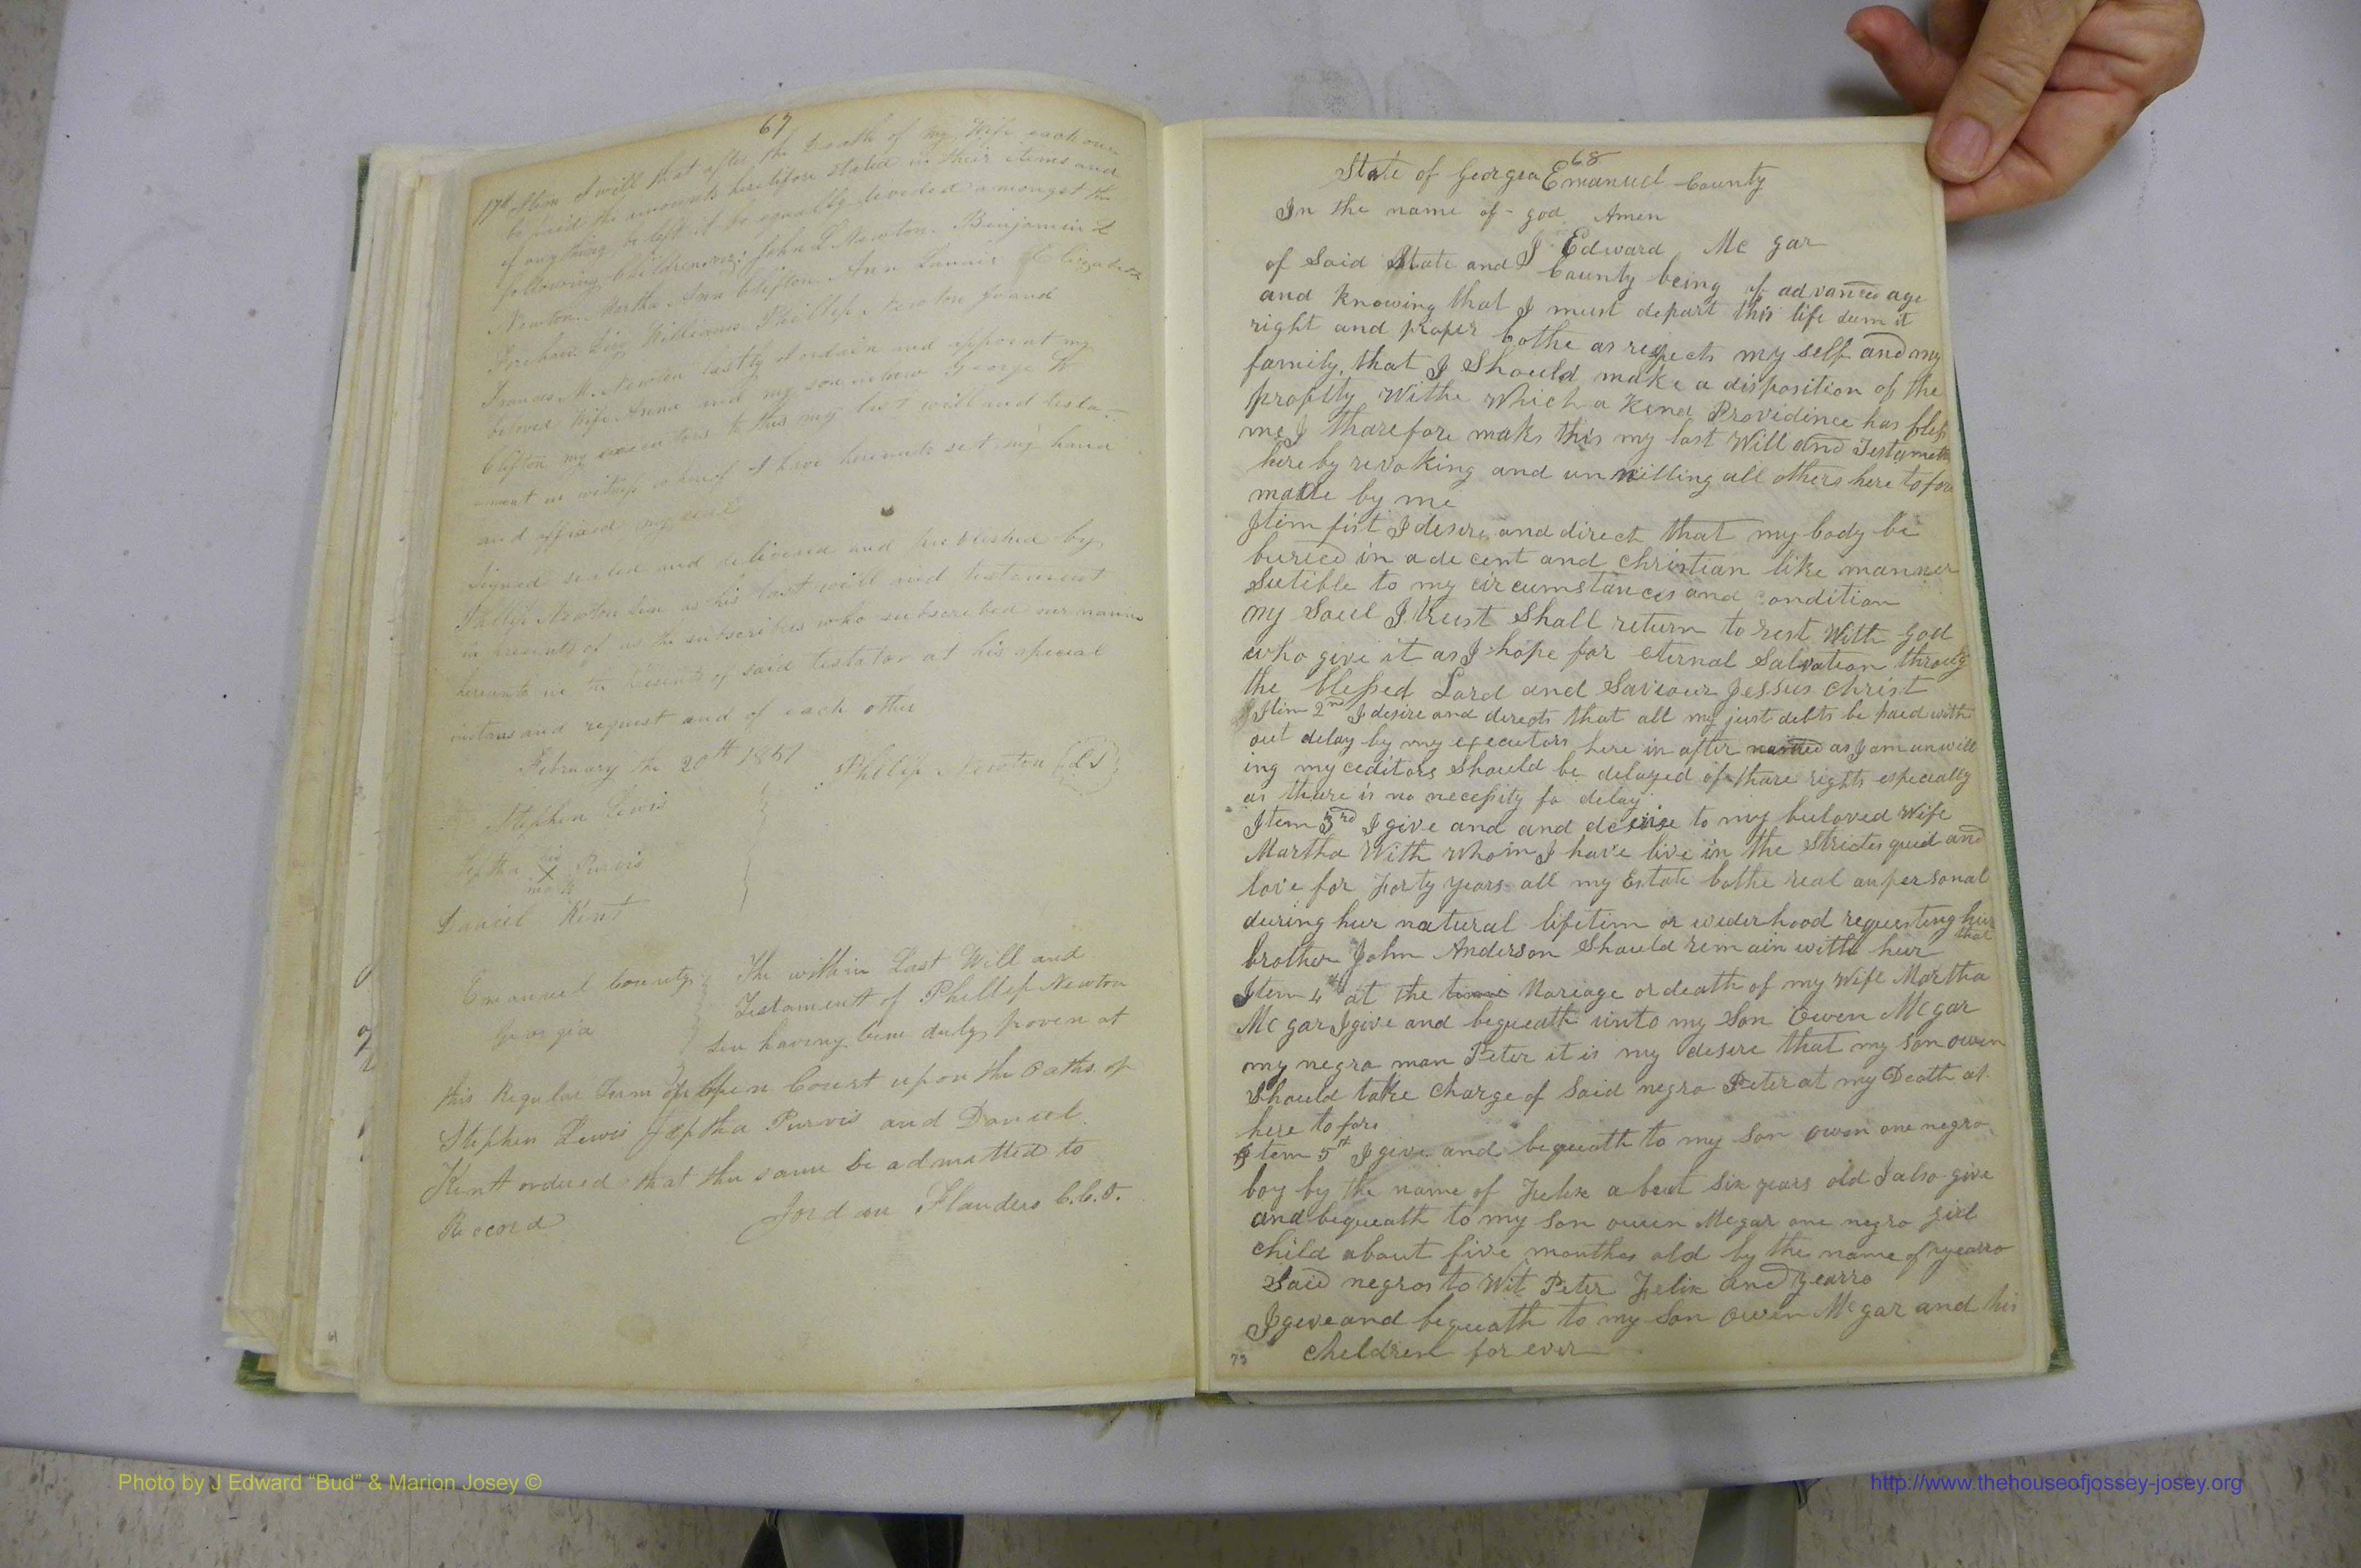 67
17th Item I will that after the Death of my Wife each one
be paid the amounts heretofore stated in their items and
if anything be left it be equally devided amongst the
following Children viz: John L Newton. Benjamin L
Newton. Martha Ann Clifton Ann Lanair Elizabeth
Williams Phillip Newton Grand
Frances M. Newton lastly I ordain and appoint my
beloved Wife Anna and my son in law George W
Clifton my executors to this my last will and testa-
-ment in witness whereof I have hereunto set my hand
and affixed my seal
Signed sealed and delivered and published by
Phillip Newton Sen as his last will and testament
in presents of us the subscribers who subscribed our names
hereunto in the presents of said testator at his special
instans and request and of each other
February the 20th 1851 Phillip Newton (LS)
Stephen Lewis
Jeptha his X mark Purvis
Daniel Kent
Emanuel County The within Last Will and
Georgia Testament of Phillip Newton
Sen having been duly proven at
this Regular Term of open Court upon the Oaths of
Stephen Lewis Jeptha Purvis and Daniel
Kent ordered that the same be admitted to
Record Jordan Flanders C.C.O.
68
State of Georgia Emanuel County
In the name of god Amen
I Edward Mc gar
of Said State and County being of advanced age
and Knowing that I must depart this life deem it
right and proper bothe as respects my self and my
family, that I Should make a disposition of the
proplty Withe Which a Kind Providince has bless
me I tharefore make this my last Will and Testament
here by revoking and un willing all others here to fore
made by me
Item fist I desire and direct that my body be
buried in a de cent and Christian like manner
Sutible to my circumstances and Condition
my Soul I trust Shall return to rest With God
who give it as I hope for eternal Salvation throug
the blessed Lord and Saviour Jessus Christ
Item 2nd I desire and directs that all my just debts be paid with
out delay by my executors here in after named as I am unwill
ing my ceditors Should be delayed of thare rights especially
as thare is no necessity fo delay
Item 3rd I give and and devise to my beloved Wife
Martha With whom I have live in the Strictes quid and
love for Forty years all my Estate bothe real an personal
during hur natural lifetim or widerhood requesting hur
brother John Anderson Should remain with hur that
Item 4th at the time Mariage or death of my Wife Martha
Mc gar I give and bequeath unto my Son Owen Mcgar
my negro man Peter it is my desire that my Son owen
Should take Charge of Said negro Peter at my Death as
here to fore
Item 5th I give and bequeath to my Son owen one negro
boy by the name of Felix about Six years old I also give
and bequeath to my Son owen Mcgar one negro girl
Child about five monthes old by the name of
Said negros to Wit Peter Felix and
I give and bequeath to my Son Owen Mcgar and his
Children for ever
73
Photo by J Edward “Bud” & Marion Josey ©
http://www.thehouseofjossey-josey.org